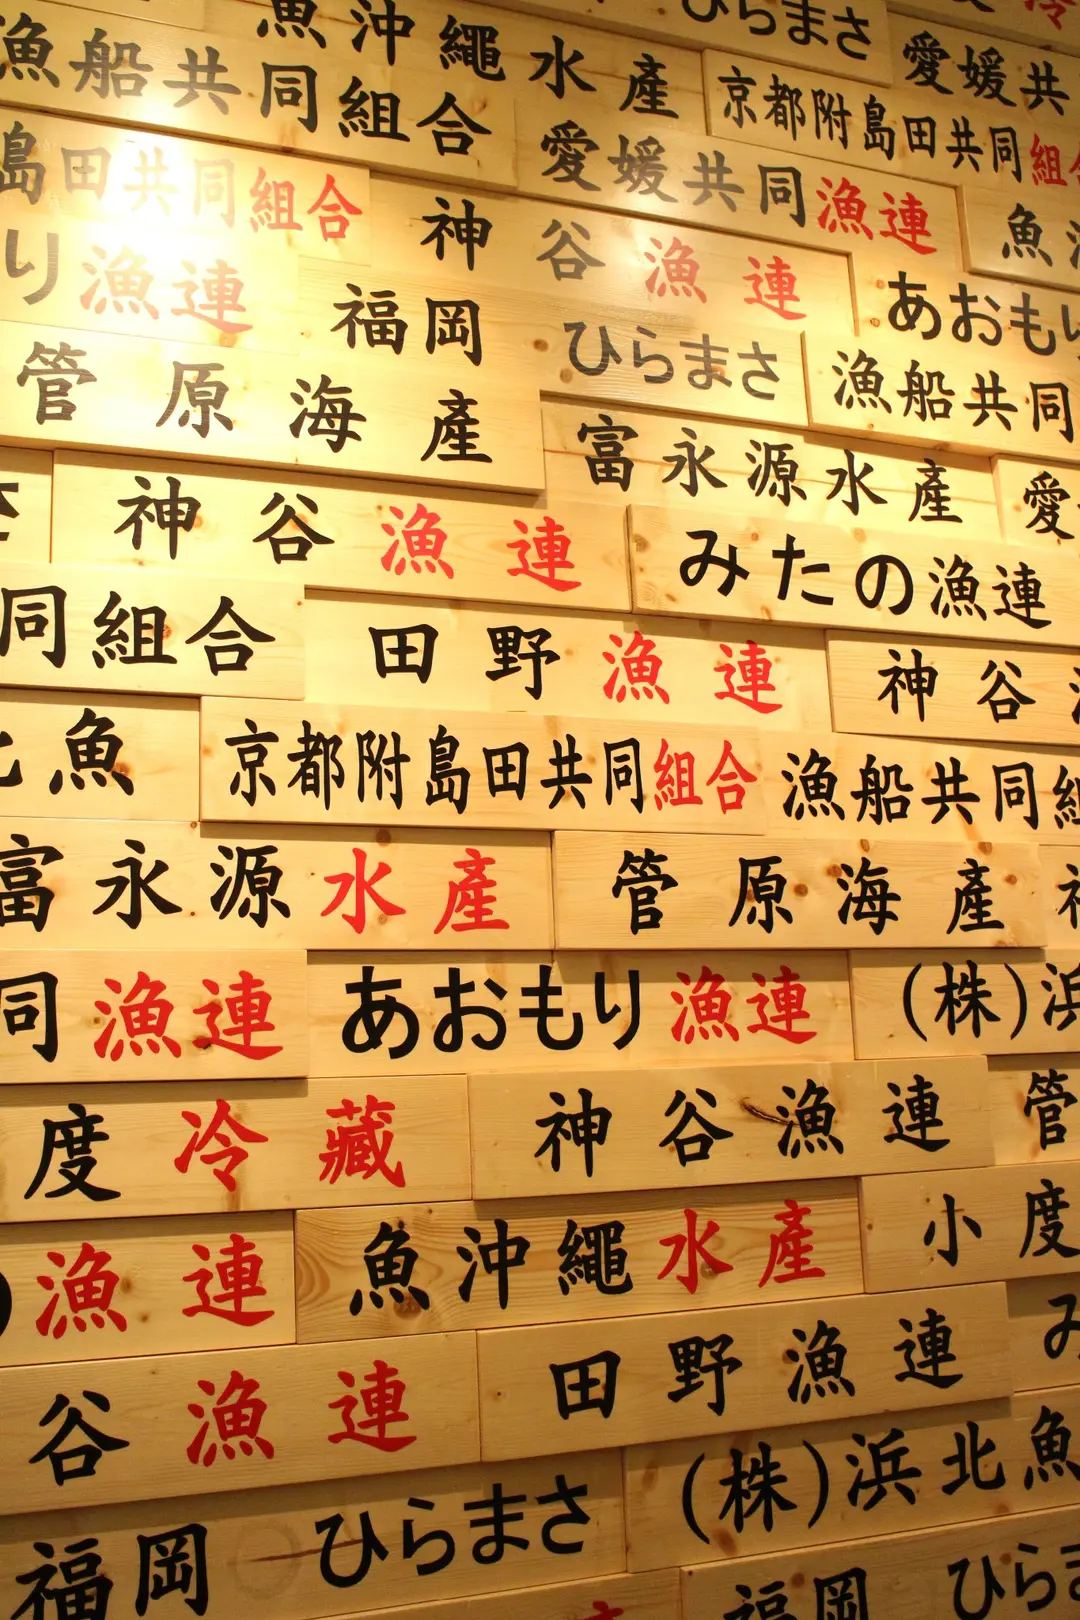 魚沖繩水產
ひらまさ
冷
漁船共同組合
京都附島田共同組合
愛媛共
島田共同組合
愛媛共同漁連
魚
り漁連
神谷漁連
あおもり
福岡
ひらまさ
漁船共同
管原海產
富永源水產
愛
神谷漁連
みたの漁連
同組合
田野漁連
神谷
魚
京都附島田共同組合
漁船共同組
富永源水產
管原海產
同漁連
あおもり漁連
(株)浜
度冷藏
神谷漁連
管
)漁連
魚沖繩水產
小度
谷漁連
田野漁連
み
福岡
ひらまさ
(株)浜北魚
福岡
ひらま